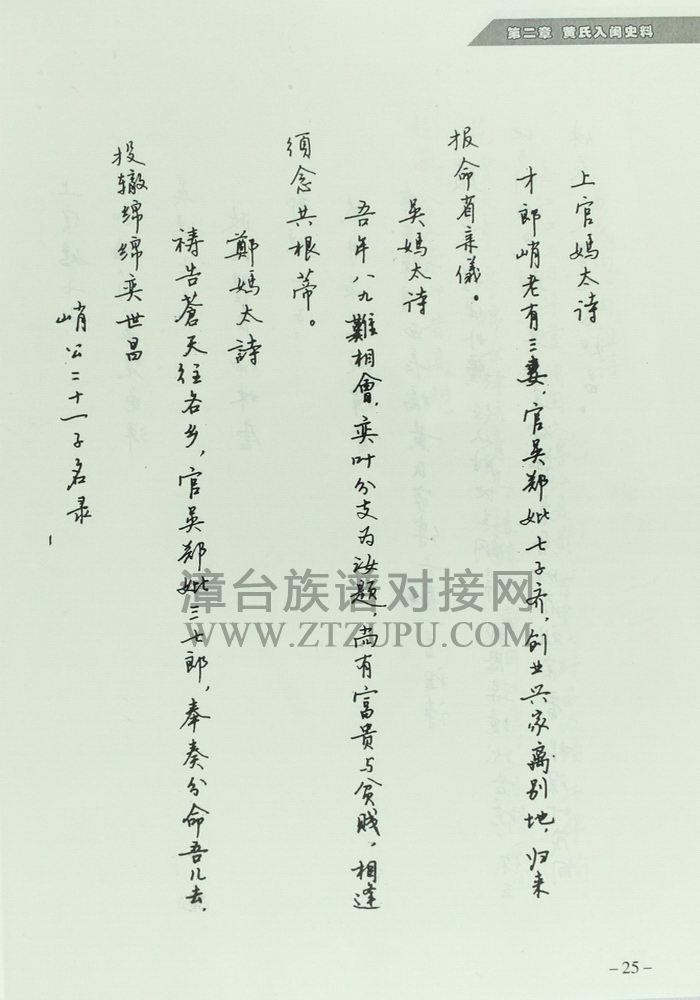 第二章 黄氏入闽史料
上官媽太诗
才郎峭老有三妻，官吴郑妣七子齐，创业兴家离别地，归来
报命省亲儀。
吴媽太诗
吾年八九難相會，奕叶分支为汝题，尚有富貴与贫贱，相逢
须念共根蒂。
鄭媽太詩
祷告蒼天往各乡，官吴郑妣三七郎，奉奏分命吾儿去，
投辙绵绵奕世昌
峭公二十一子名录
漳台族谱对接网
WWW.ZTZUPU.COM
－25－